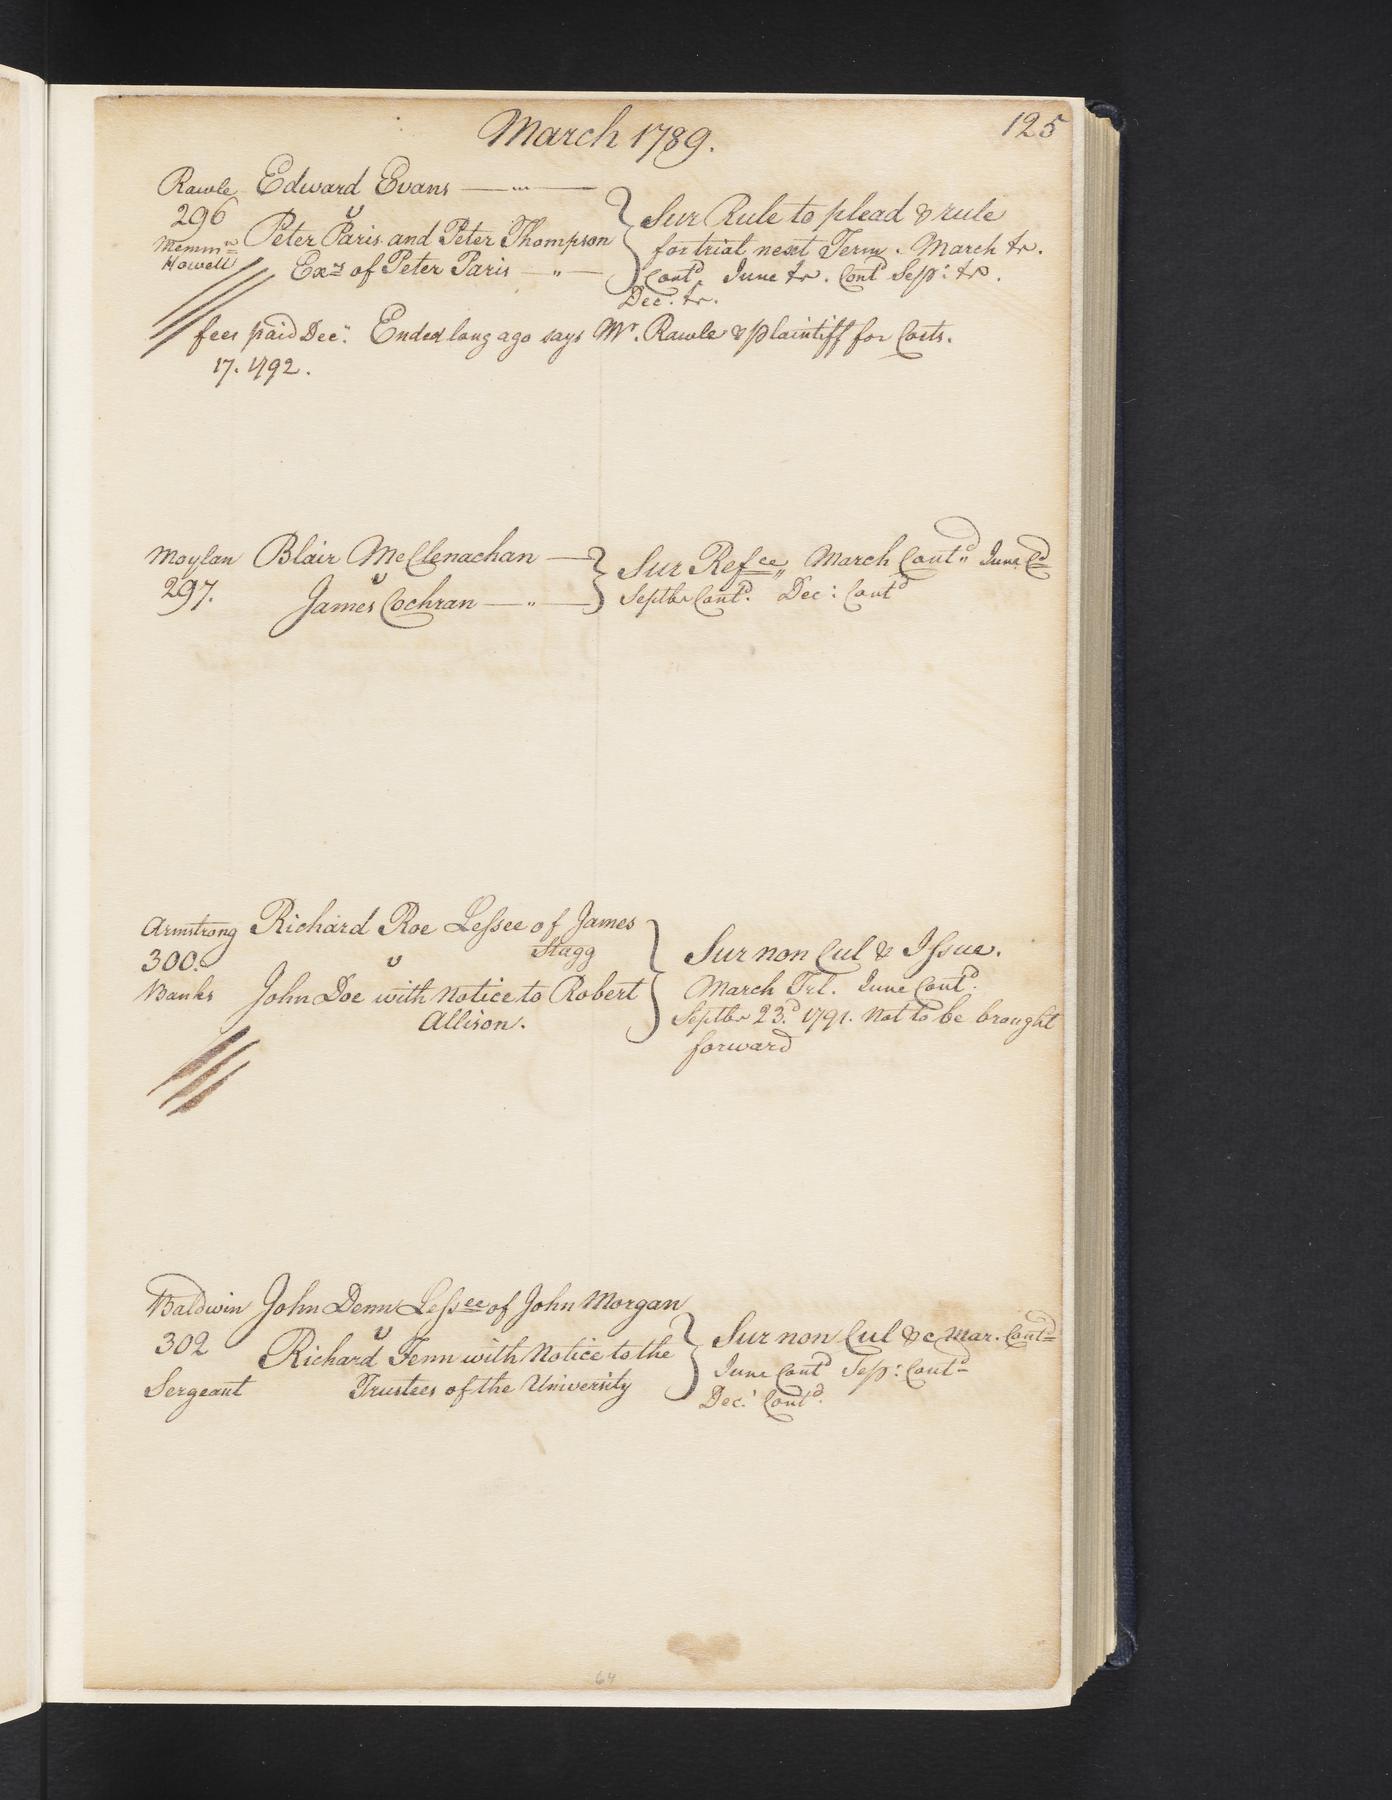 125
March 1789.
Rawle Edward Evans
296 v
Peter Paris and Peter Thompson
Howell Exrs of Peter Paris
Sur Rule to plead & rule
for trial next Term. March tr.
Contd. June tr. Contd Sep: tr.
Dec. tr.
fees paid Dec: Ended long ago says Mr. Rawle & plaintiff for Costs.
17. 1792.
Moylan Blair McClenachan
297. v
James Cochran
Sur Refce March Contd June Cd
Septbr Contd. Dec: Contd
Armstrong Richard Roe Lessee of James
Stagg
300. v
Banks John Doe with Notice to Robert
Allison.
Sur non Cul & Issue.
March Trl. June Contd.
Septbr 23d. 1791. Not to be brought
forward
Baldwin John Denn Lessee of John Morgan
302 v
Richard Fenn with Notice to the
Sergeant Trustees of the University
Sur non Cul &c Mar. Contd
June Contd Sep: Contd
Dec: Contd.
64